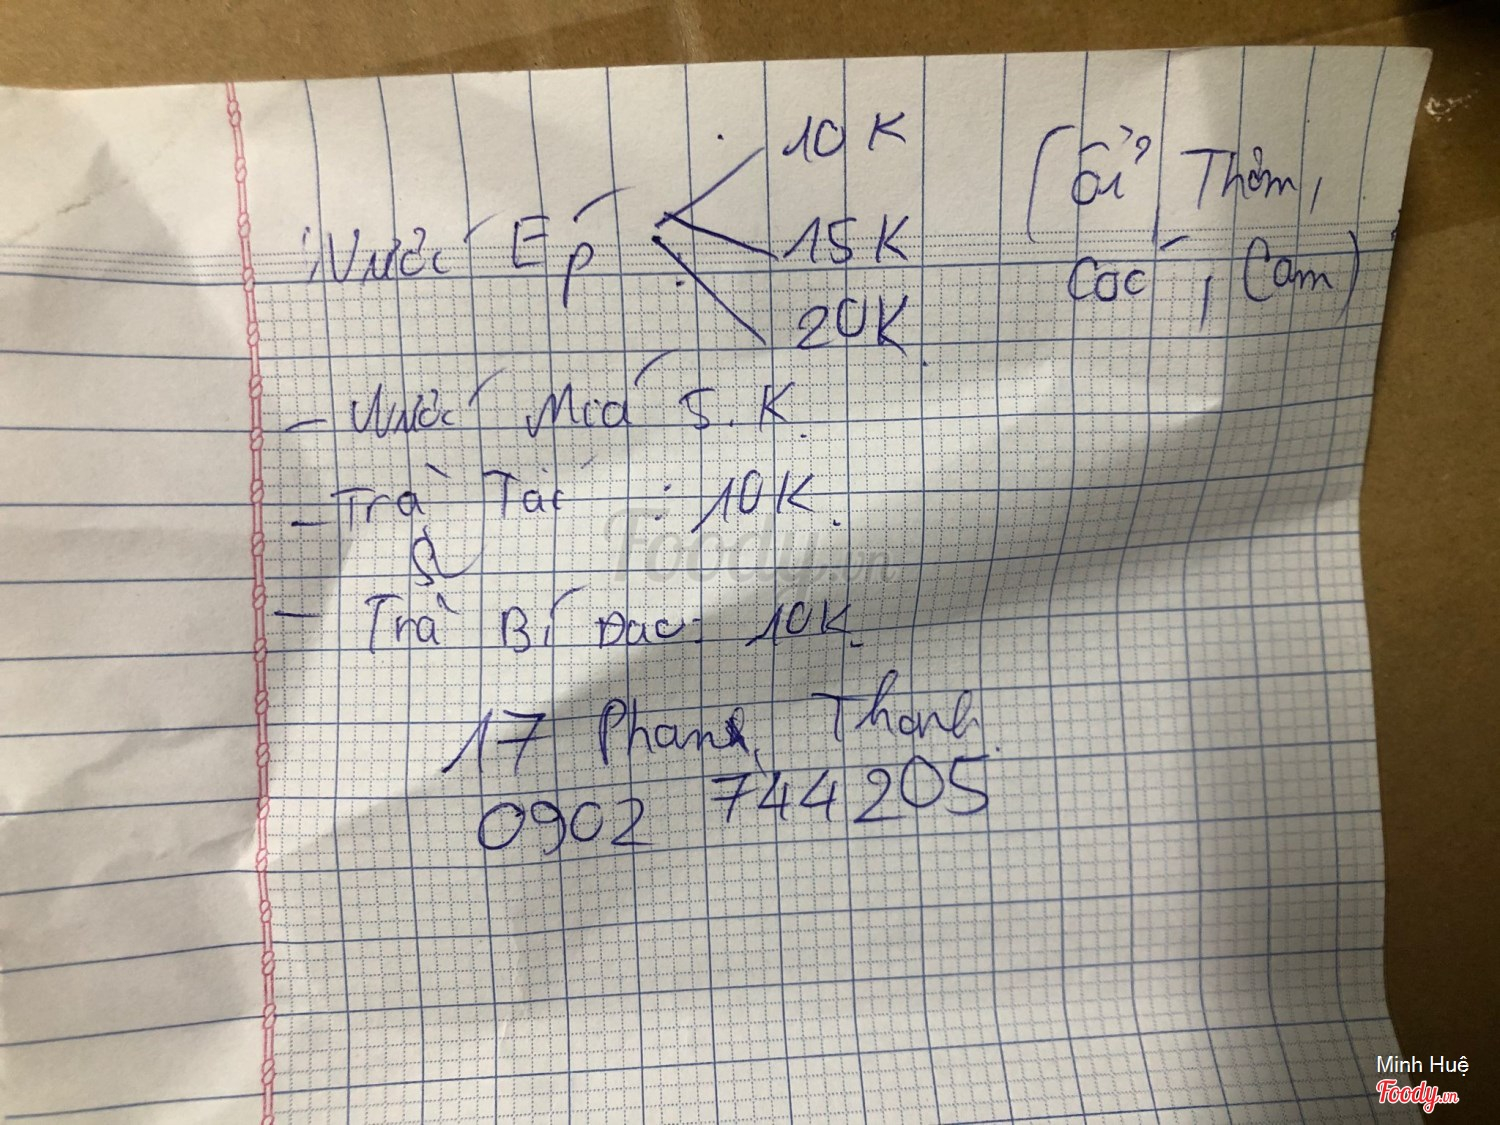 10K
Nước Ép 15K (Ổi, Thơm,
20K Cóc, Cam)
- Nước Mía 5.K.
- Trà Tắc : 10K.
- Trà Bí Đao: 10K.
17 Phan Thanh.
0902 744205
Foody.vn
Minh Huệ
Foody.vn